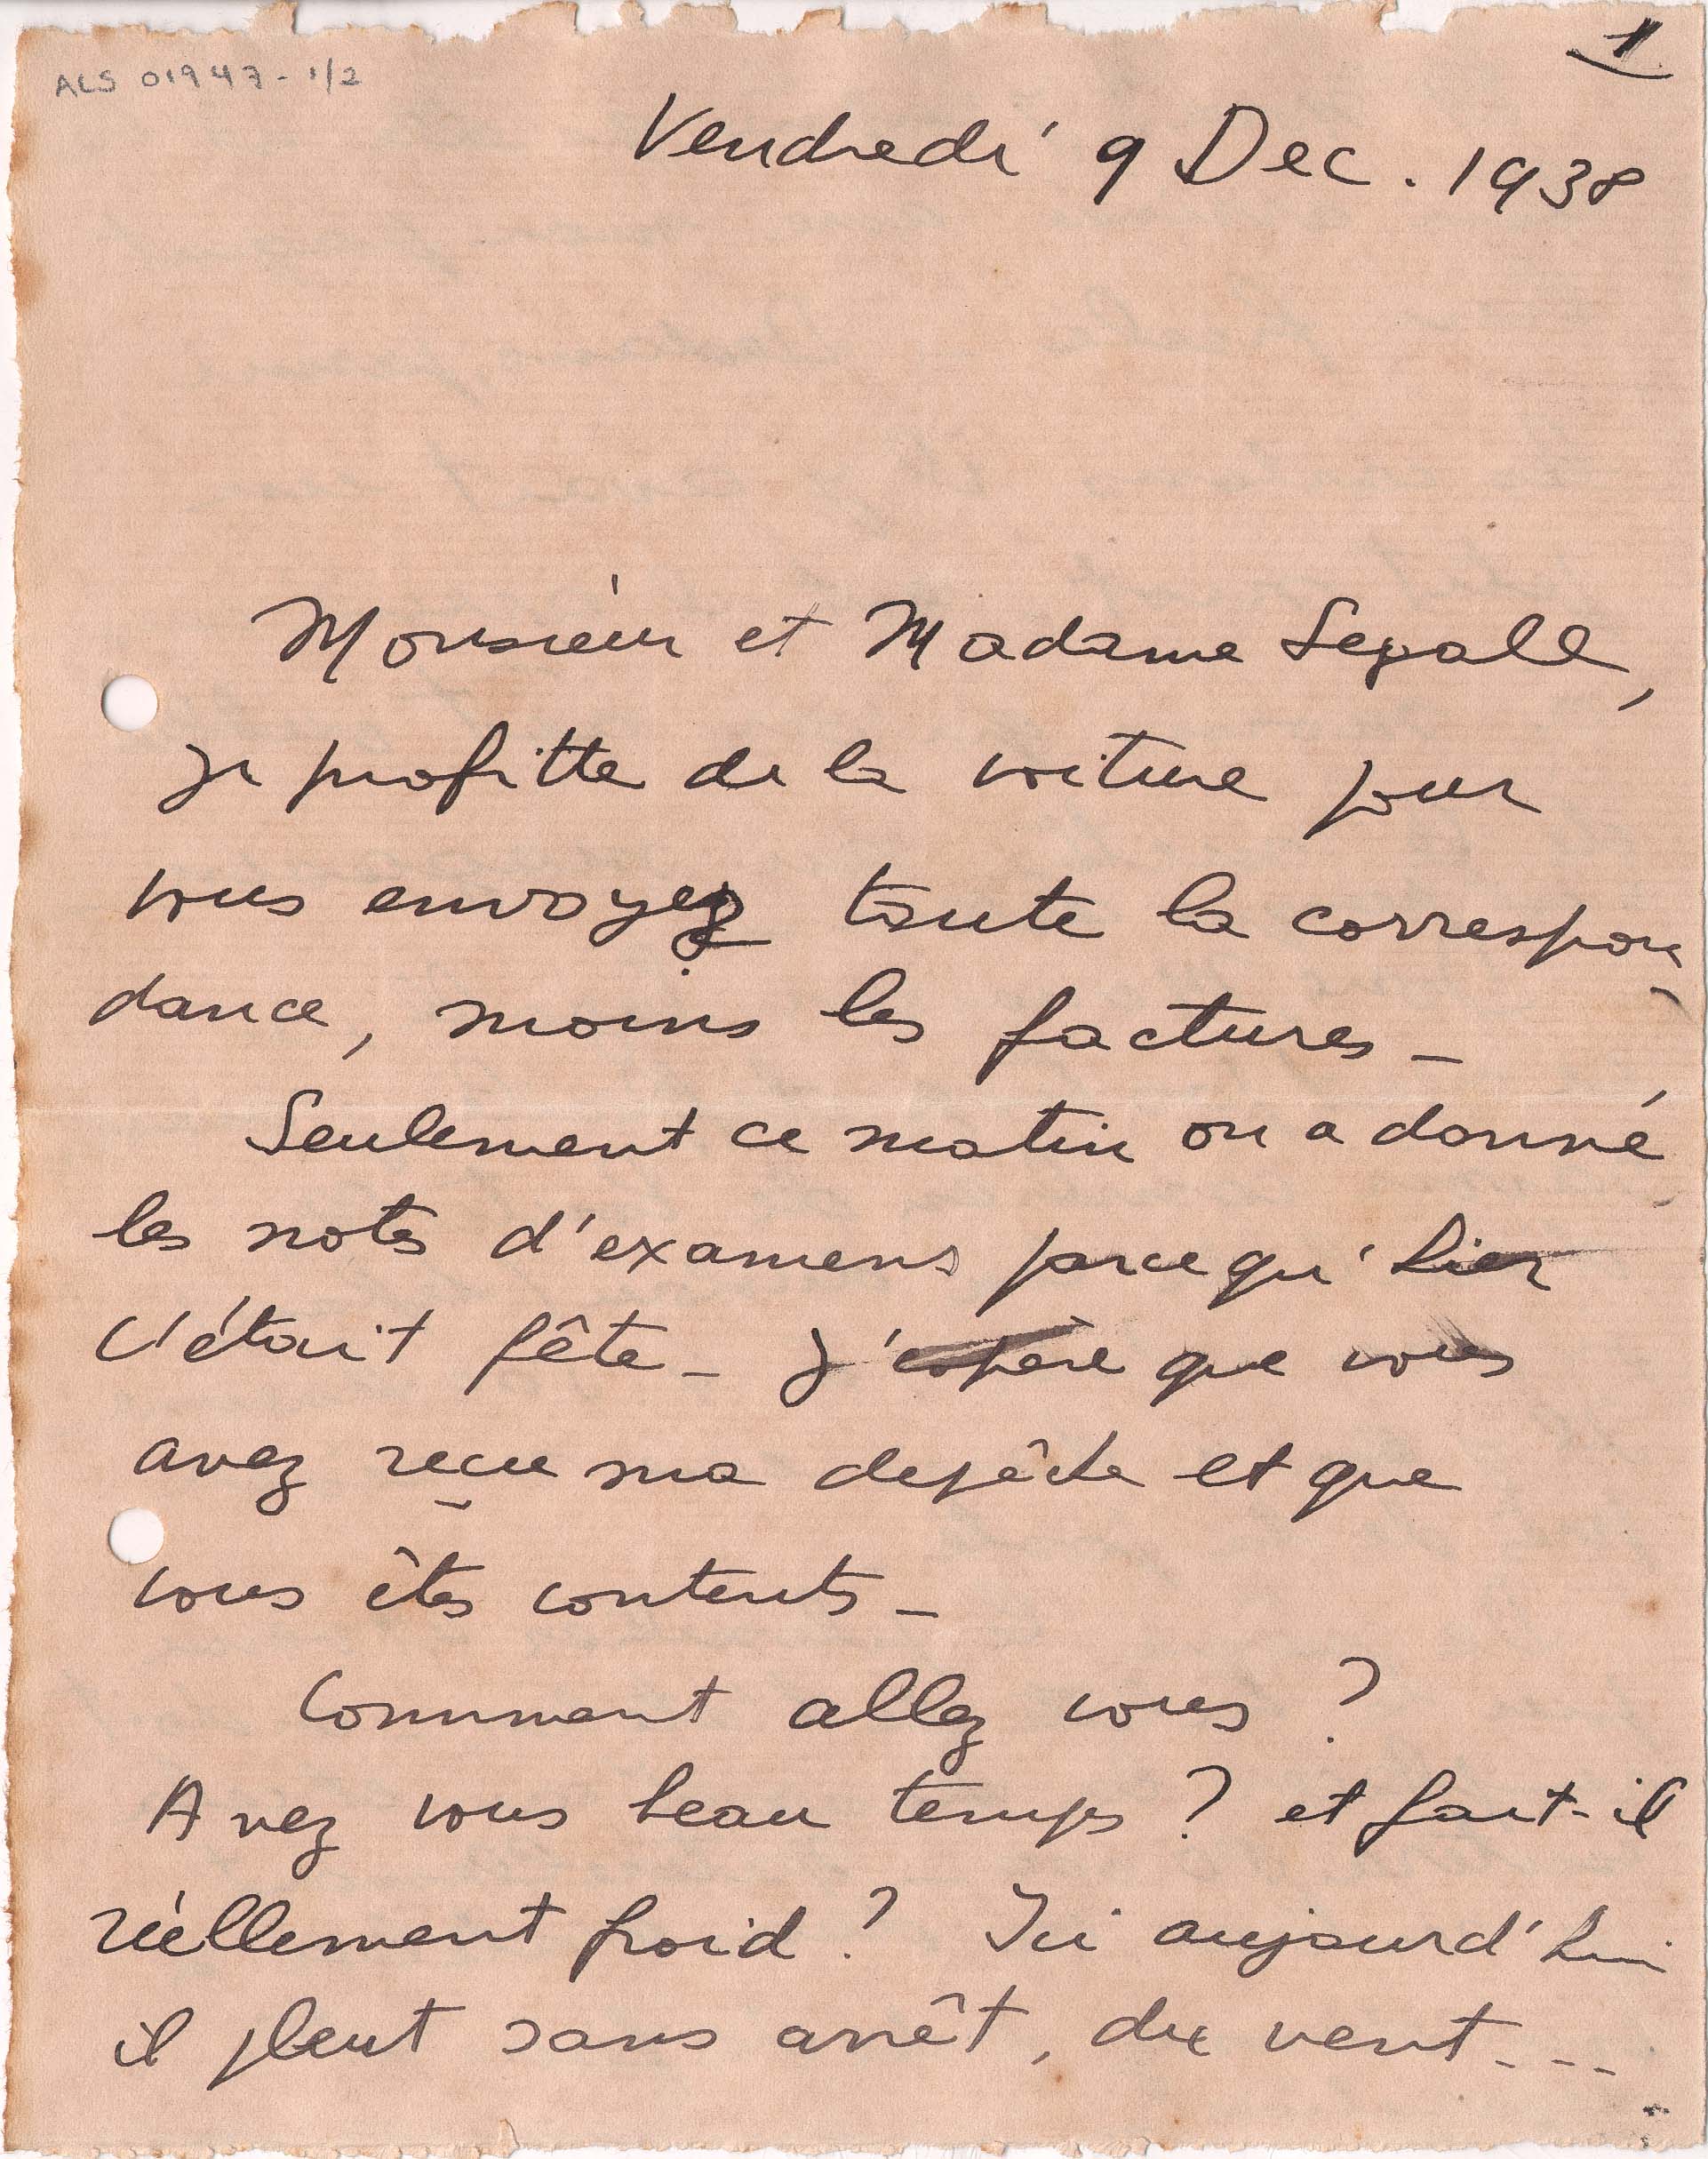 1
ALS 01947-1/2
Vendredi 9 Dec. 1938
Monsieur et Madame Segall,
je profitte de la voiture pour
vous envoyez toute la correspon
dance, moins les factures_
Seulement ce matin on a donné
les notes d'examens parcequ'hier
c'était fête_ J'espère que vous
avez reçue ma depêche et que
vous êtes contents_
Comment allez vous ?
Avez vous beau temps ? et fait-il
réellement froid ? Ici aujourd'hui
il pleut sans arrêt, du vent...